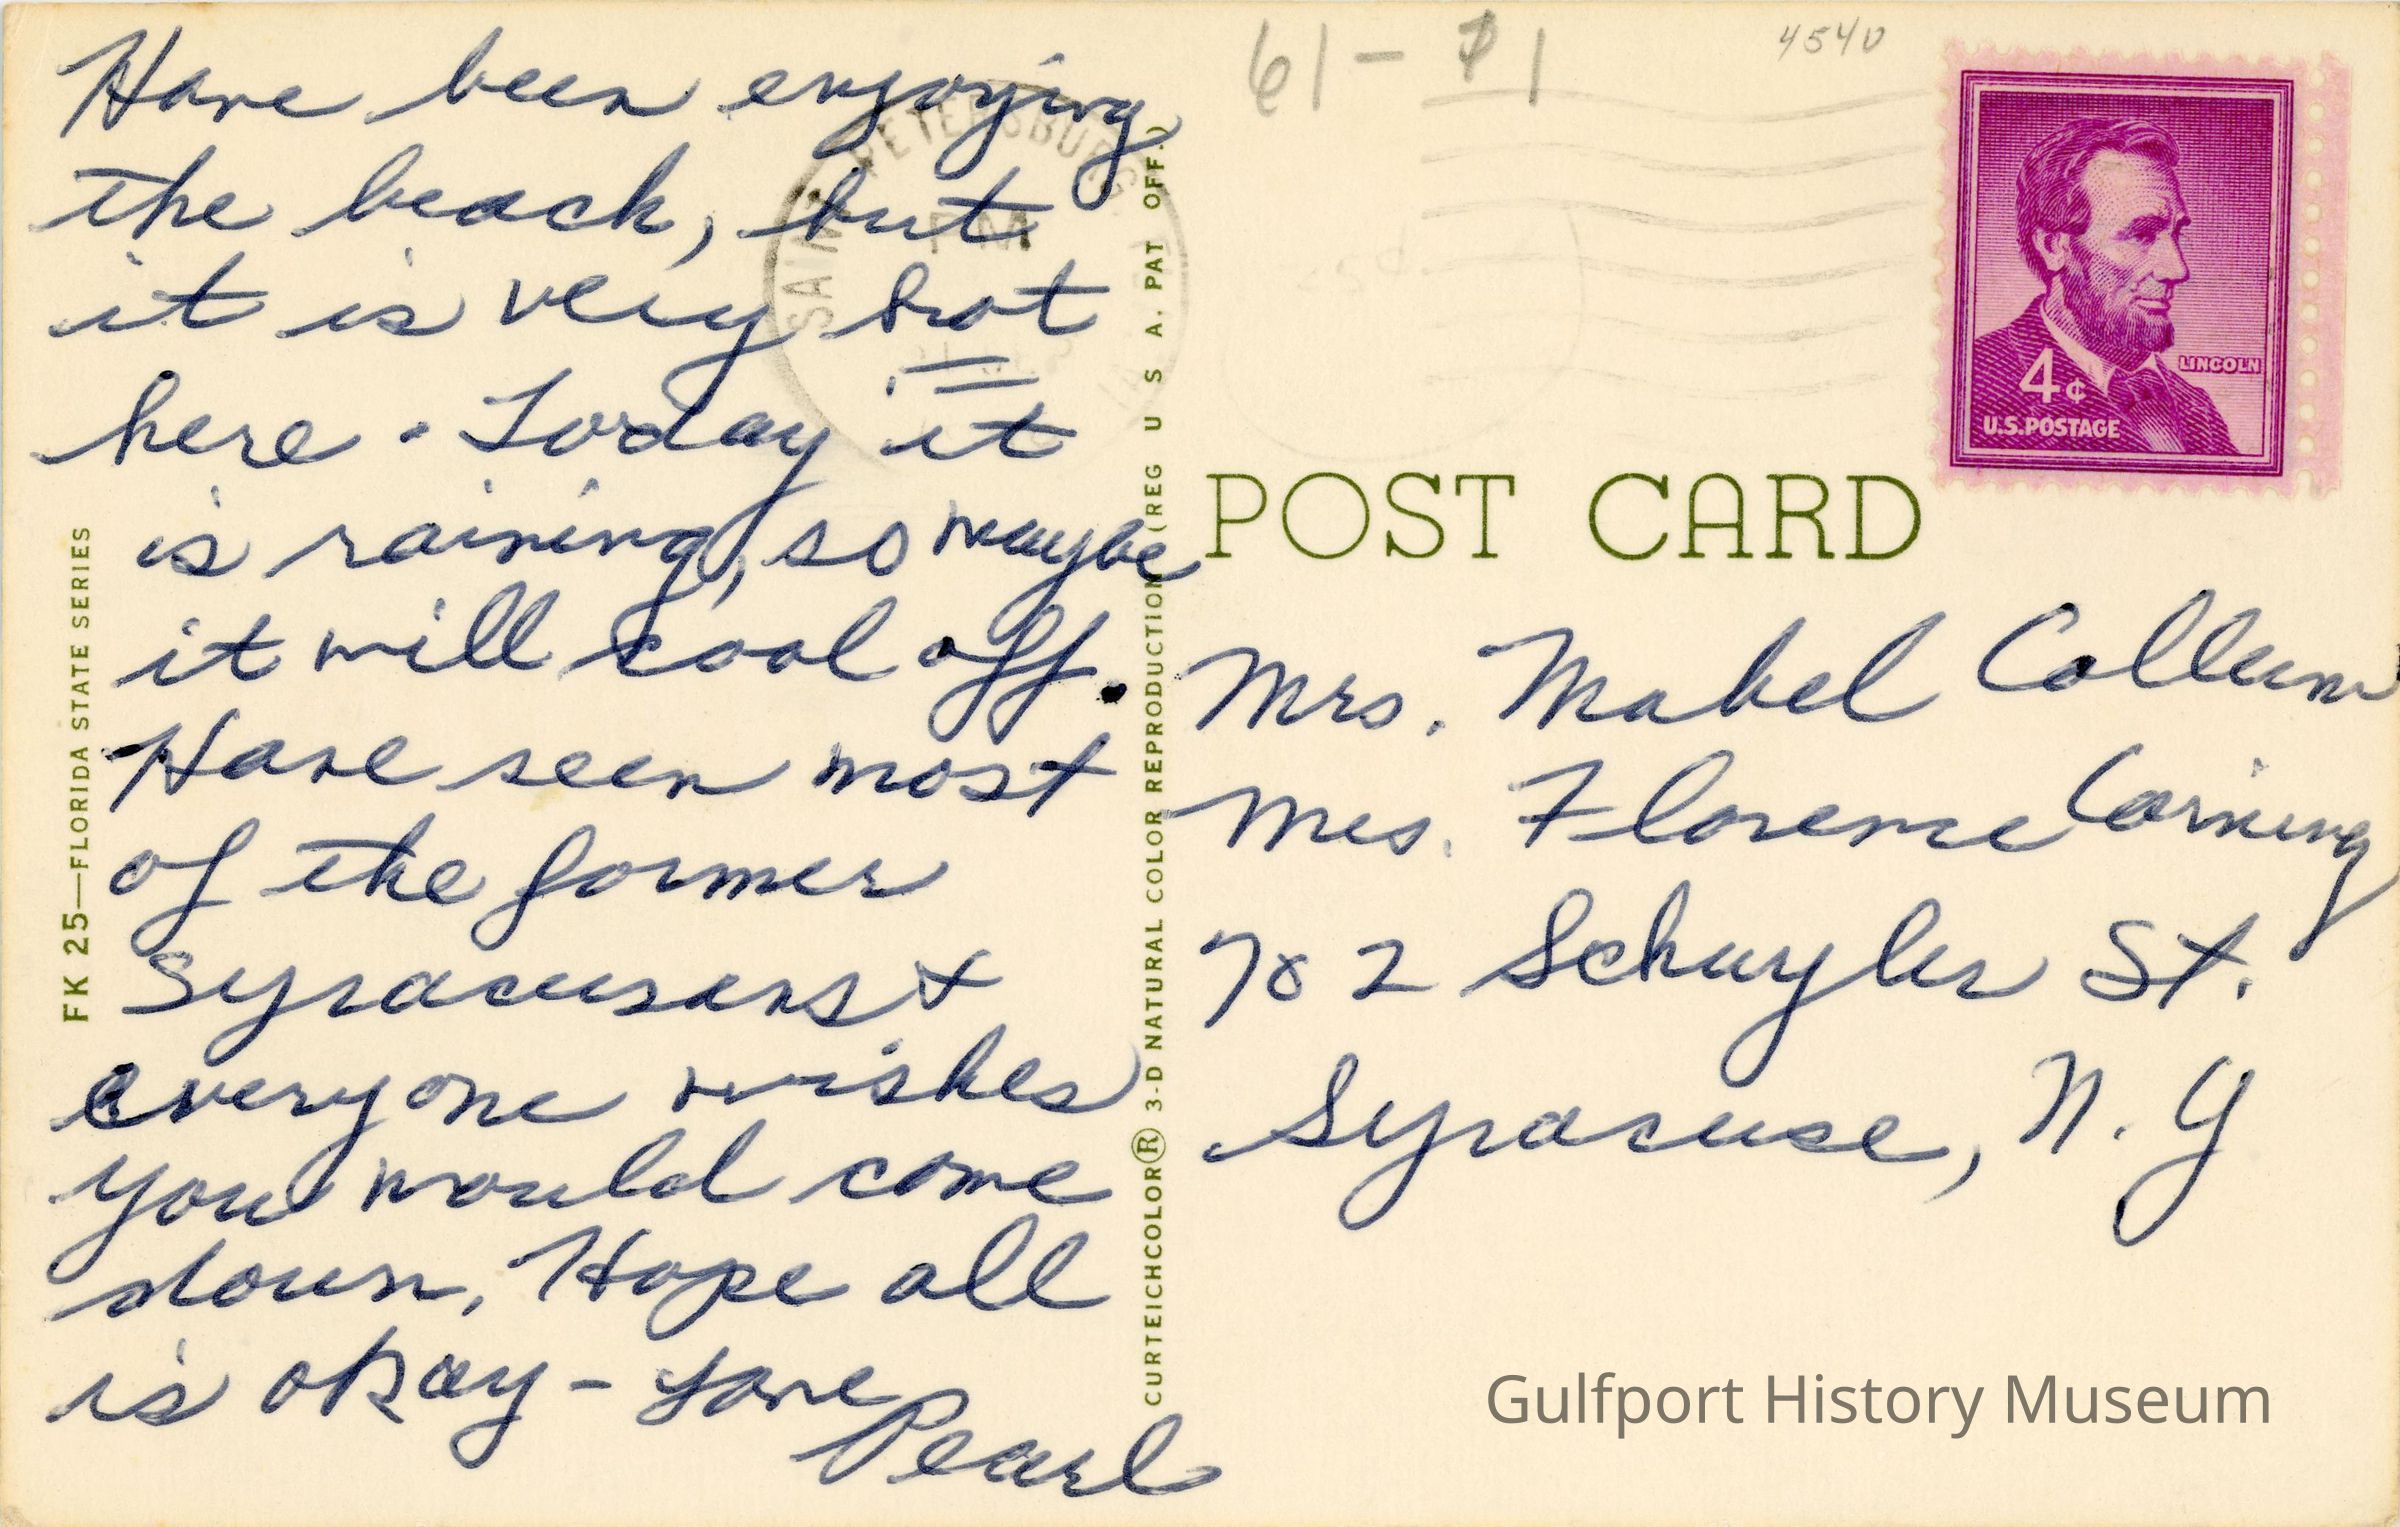 Have been enjoying
the beach, but
it is very hot
here. Today it
is raining, so maybe
it will cool off.
Have seen most
of the former
Syracusans &
everyone wishes
you would come
down. Hope all
is okay - Love
Pearl
FK 25—FLORIDA STATE SERIES
SAINT PETERSBURG
PM
CURTEICHCOLOR® 3-D NATURAL COLOR REPRODUCTION (REG U S A. PAT OFF.)
61-
4540
LINCOLN
4¢
U.S.POSTAGE
POST CARD
Mrs. Mabel Collum
Mrs. Florence Corning
702 Schuyler St.
Syracuse, N.Y
Gulfport History Museum